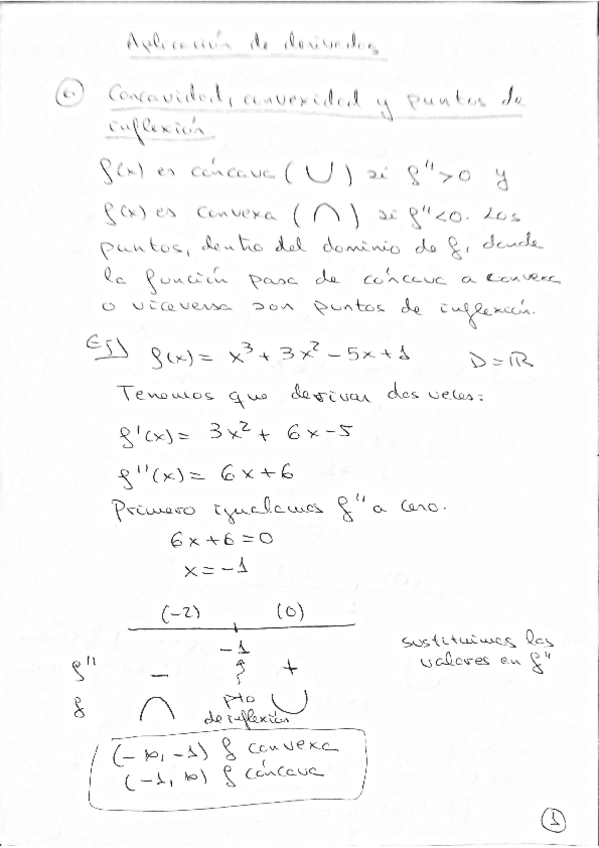 Aplicación de derivadas
6) Concavidad, convexidad y puntos de
inflexión
f(x) es cóncava (∪) si f''>0 y
f(x) es convexa (∩) si f''<0. Los
puntos, dentro del dominio de f, donde
la función pasa de cóncava a convexa
o viceversa son puntos de inflexión.
Ej) f(x) = x³ + 3x² - 5x + 1 D = ℝ
Tenemos que derivar dos veces:
f'(x) = 3x² + 6x - 5
f''(x) = 6x + 6
Primero igualamos f'' a cero.
6x + 6 = 0
x = -1
(-2) (0)
-1
sustituimos los
valores en f''
f'' - +
f ∩ pto ∪
de inflexión
(-∞, -1) f convexa
(-1, ∞) f cóncava
1